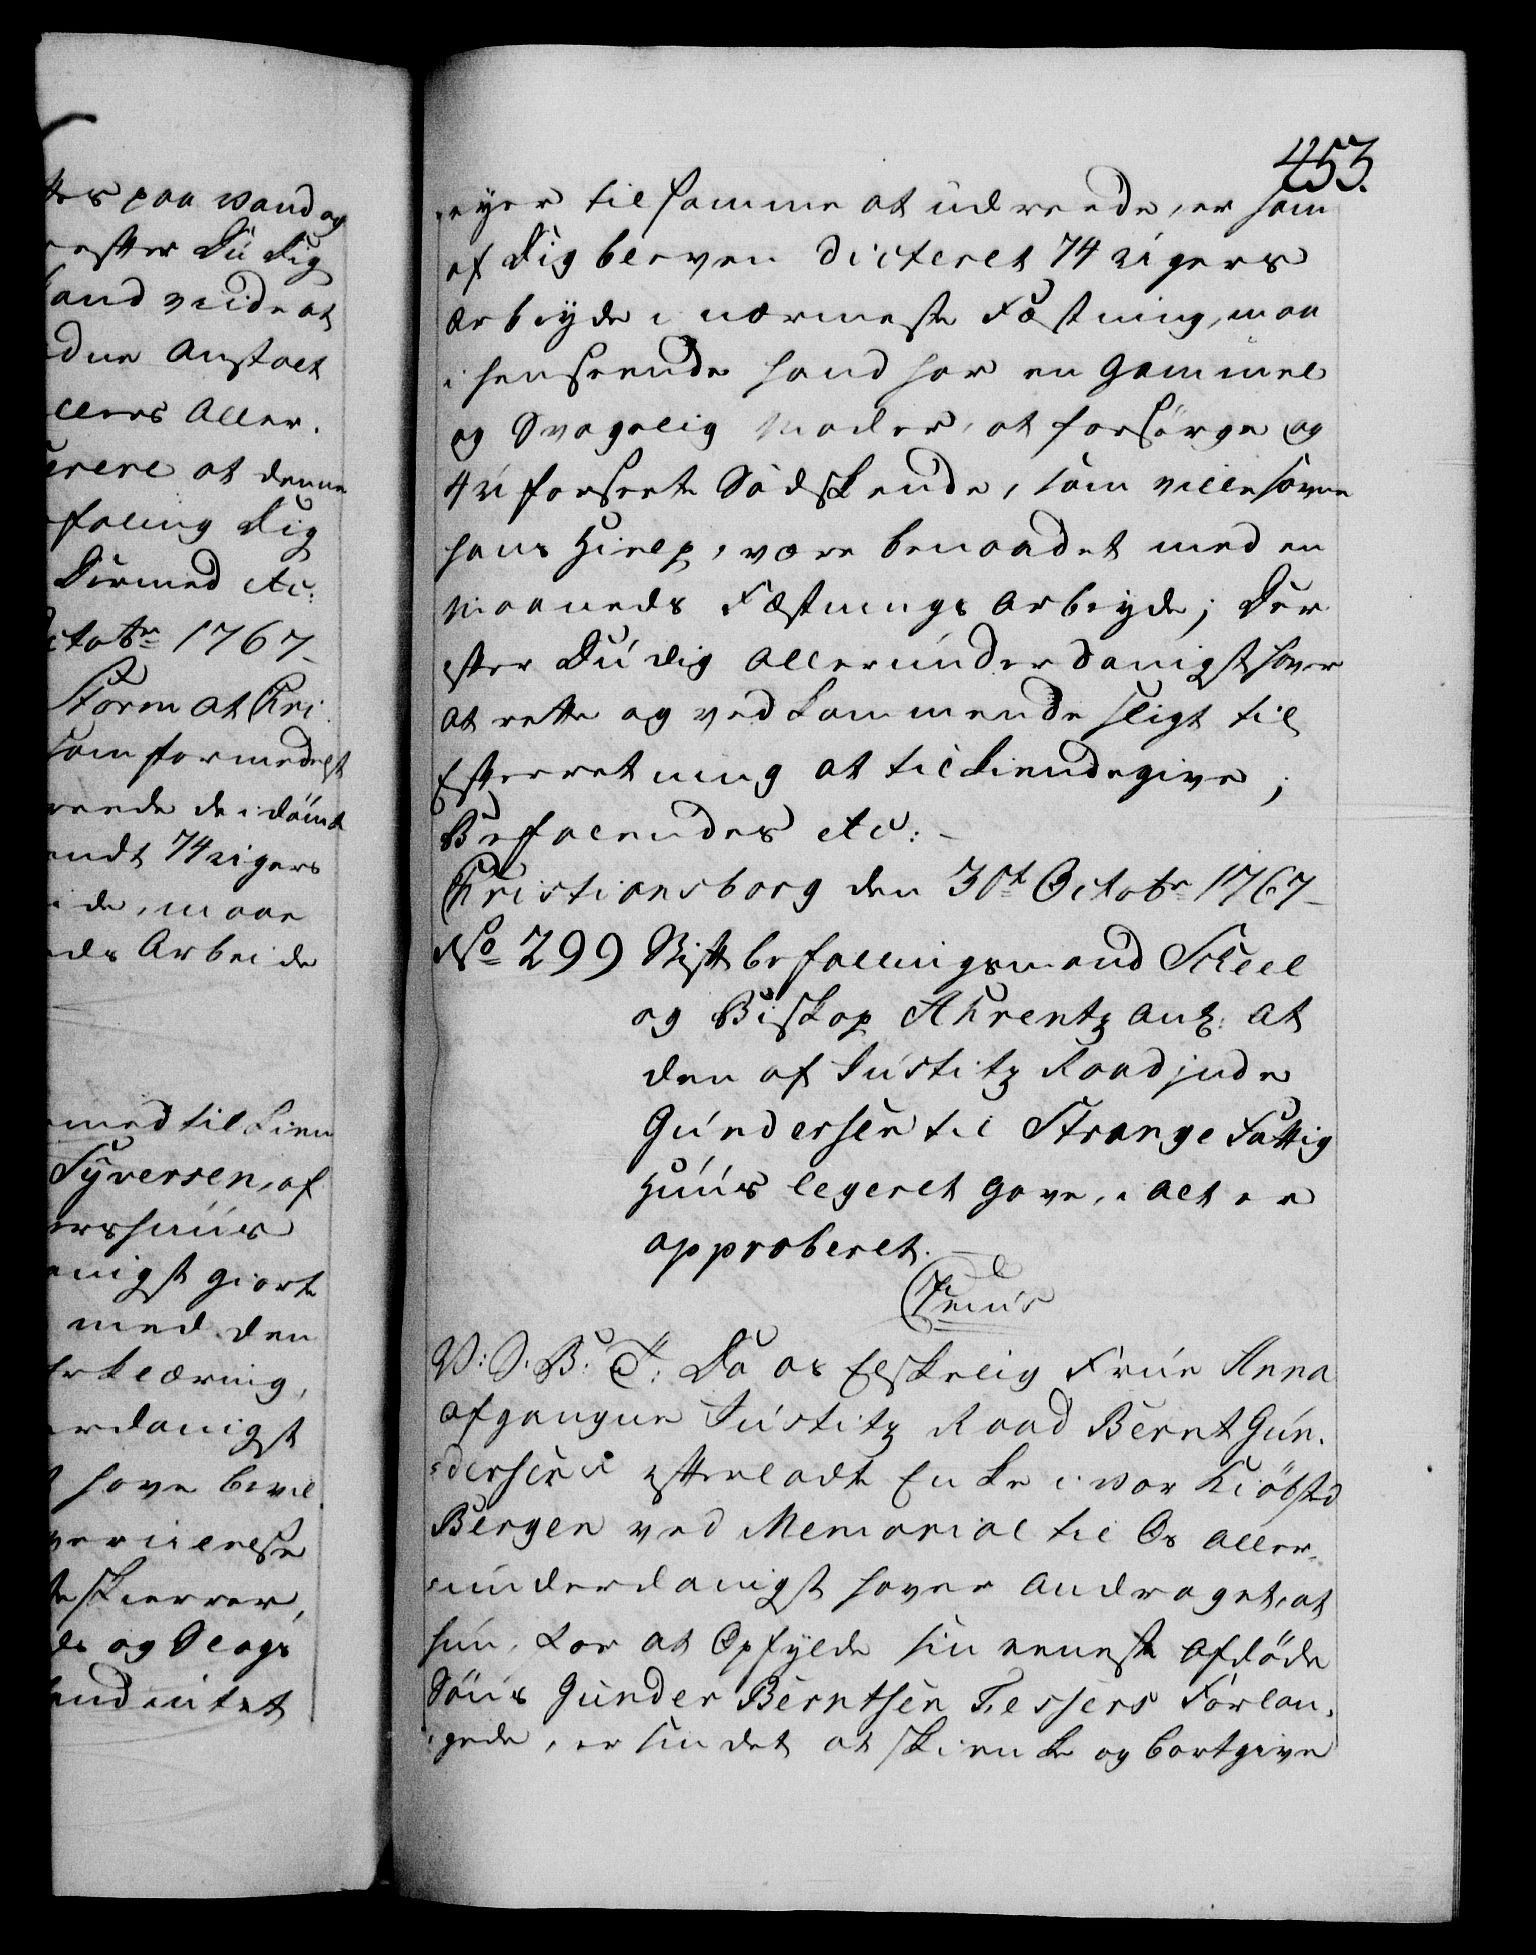 tes paa Vand og
efter Du dig
Haand viide at
dne Anstalt
ellers Aller¬
erere at denne
faling Dig
Dermed etc:
Octobr 1767_
Storm at Chri
som formedelst
reede de idömt
endt 74 Ugers
ide, maae
eds Arbeide
med til kien
Syversen, af
ershuus
enigst giorte
med den
erklæring,
erdanigst
t have bevil
skierver,
ds og Slags
hend intet
453.
eyer til samme at udreede, er ham
af Dig bleven Dicteret 74 Ugers
Arbeyde i nærmeste Fæstning, maa
i henseende hand har en Gammel
og Svagelig Moder, at forsörge og
4 uforsörte Södskende, som ville savne
hans Hielp, være benaadet med en
Maaneds Fæstnings Arbeyde; Der¬
efter Du dig Allerunderdanigst haver
at rette og vedkommende sligt til
Efterretning at tilkiendegive;
Befalendes etc: -
Christiansborg den 30t Octobr 1767_
No 299 Stiftbefalingsmand Scheel
og Biskop Ahrentz ang: at
den af Justitz Raadinde
Gundersen til Strange Fattig
Huus legeret Gave, i alt er
approberet. -
Genus
V: S. B: T: Da os Elskelig Frue Anna
afgangne Justitz Raad Bernt Gun¬
dersens efterladte Enke i vor Kiöbsted
Bergen ved Memorial til Os Aller¬
underdanigst haver Andraget, at
hun, for at Opfylde sin eeneste Afdöde
Söns Gunder Berntsen Fessers Forlan¬
gede, er sindet at skienke og bortgive